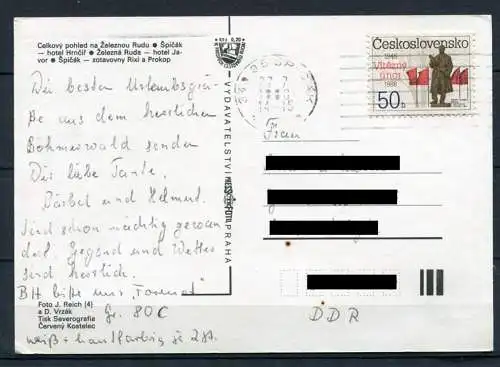 Celkový pohled na Železnou Rudu ● Špičák
– hotel Hrnčíř ● Železná Ruda – hotel Ja-
vor ● Špičák – zotavovny Rixi a Prokop
Die besten Urlaubsgrü-
ße aus dem herrlichen
Böhmerwald senden
Dir liebe Tante,
Bärbel und Helmut.
Sind schon mächtig gewan-
dert. Gegend und Wetter
sind herrlich.
BH bitte nur „Format"
Gr. 80 C
weiß + hautfarbig je 2 St.
Foto J. Reich (4)
a D. Vrzák
Tisk Severografia
Červený Kostelec
VYDAVATELSTVÍ
PRAHA
Československo
1948
Vítězný
únor
1988
50 h
Frau
DDR